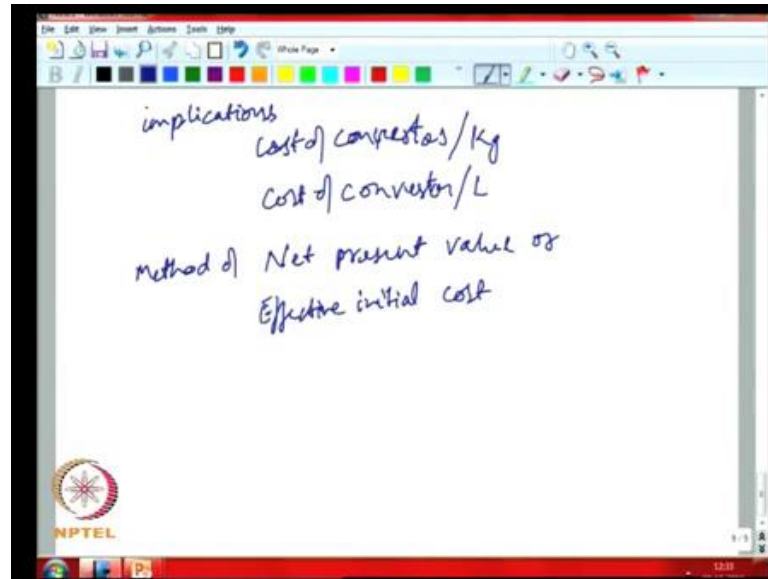 File Edit View Insert Actions Tools Help
Whole Page
B I
implications
Cost of convertos/Kg
Cost of convertor/L
Method of Net present value or
Effective initial cost
NPTEL
9/9
12:33